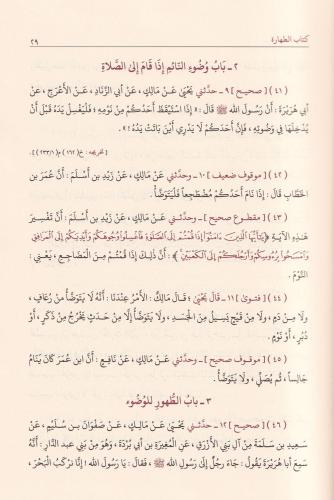 كتاب الطهارة ٢٩
٢ ـ بَابُ وُضُوءِ النَّائِمِ إِذَا قَامَ إِلَى الصَّلاَةِ
(٤١) [ صحيح ] ٩ ـ حدَّثني عَنْ مَالِكٍ، عَنْ أَبِي الزِّنَادِ، عَنِ الأَعْرَجِ، عَنْ
أَبِي هُرَيْرَةَ، أَنَّ رَسُولَ اللَّهِ ﷺ قَالَ: «إِذَا اسْتَيْقَظَ أَحَدُكُمْ مِنْ نَوْمِهِ؛ فَلْيَغْسِلْ يَدَهُ قَبْلَ أَنْ
يُدْخِلَهَا فِي وَضُوئِهِ، فَإِنَّ أَحَدَكُمْ لاَ يَدْرِي أَيْنَ بَاتَتْ يَدُهُ؟!».
[ تخريجه: خ(١٦٢) م(٢٣٣/١) ].
(٤٢) [ موقوف ضعيف ] ١٠ ـ وحدَّثني عَنْ مَالِكٍ، عَنْ زَيْدِ بنِ أَسْلَمَ: أَنَّ عُمَرَ بنَ
الخَطَّابِ قَالَ: إِذَا نَامَ أَحَدُكُمْ مُضْطَجِعاً؛ فَلْيَتَوَضَّأْ.
(٤٣) [ مقطـوع صحيح ] ـ وحدَّثني عَنْ مَالِكٍ، عَنْ زَيْدِ بنِ أَسْلَمَ: أَنَّ تَفْسِيرَ
هَذِهِ الآيَةِ ﴿يَتَأَيُّهَا الَّذِينَ ءَامَنُوٓا إِذَا قُمْتُمْ إِلَى الصَّلَوٰةِ فَاغْسِلُوا وُجُوهَكُمْ وَأَيْدِيَكُمْ إِلَى الْمَرَافِقِ
وَامْسَحُوا بِرُءُوسِكُمْ وَأَرْجُلَكُمْ إِلَى الْكَعْبَيْنِ﴾: أَنَّ ذَلِكَ إِذَا قُمْتُمْ مِنَ المَضَاجِعِ، يَعْنِي:
النَّوْمَ.
(٤٤) [ فتـوىٰ ] ١١ ـ قَالَ يَحْيَىٰ: قَـالَ مَالِكٌ: الأَمْرُ عِنْدَنَا: أَنَّهُ لاَ يَتَوَضَّأُ مِنْ رُعَافٍ،
وَلاَ مِنْ دَمٍ، وَلاَ مِنْ قَيْحٍ يَسِيلُ مِنَ الجَسَدِ، وَلاَ يَتَوَضَّأُ إِلاَّ مِنْ حَدَثٍ يَخْرُجُ مِنْ ذَكَرٍ، أَوْ
دُبُرٍ، أَوْ نَوْمٍ.
(٤٥) [ موقـوف صحيح ] ـ وحدَّثني عَنْ مَالِكٍ، عَنْ نَافِعٍ: أَنَّ ابنَ عُمَرَ كَانَ يَنَامُ
جَالِساً، ثُمَّ يُصَلِّي، وَلاَ يَتَوَضَّأُ.
٣ ـ بَابُ الطَّهُورِ لِلْوُضُوءِ
(٤٦) [ صحيح ] ١٢ ـ حدَّثني يَحْيَىٰ، عَنْ مَالِكٍ، عَنْ صَفْوَانَ بنِ سُلَيْمٍ، عَنْ
سَعِيدِ بنِ سَلَمَةَ مِنْ آلِ بَنِي الأَزْرَقِ، عَنِ المُغِيرَةِ بنِ أَبِي بُرْدَةَ، وَهُوَ مِنْ بَنِي عَبدِ الدَّارِ: أَنَّهُ
سَمِعَ أَبَا هُرَيْرَةَ يَقُولُ: جَاءَ رَجُلٌ إِلَى رَسُولِ اللَّهِ ﷺ، فَقَالَ: يَا رَسُولَ اللَّهِ! إِنَّا نَرْكَبُ البَحْرَ،